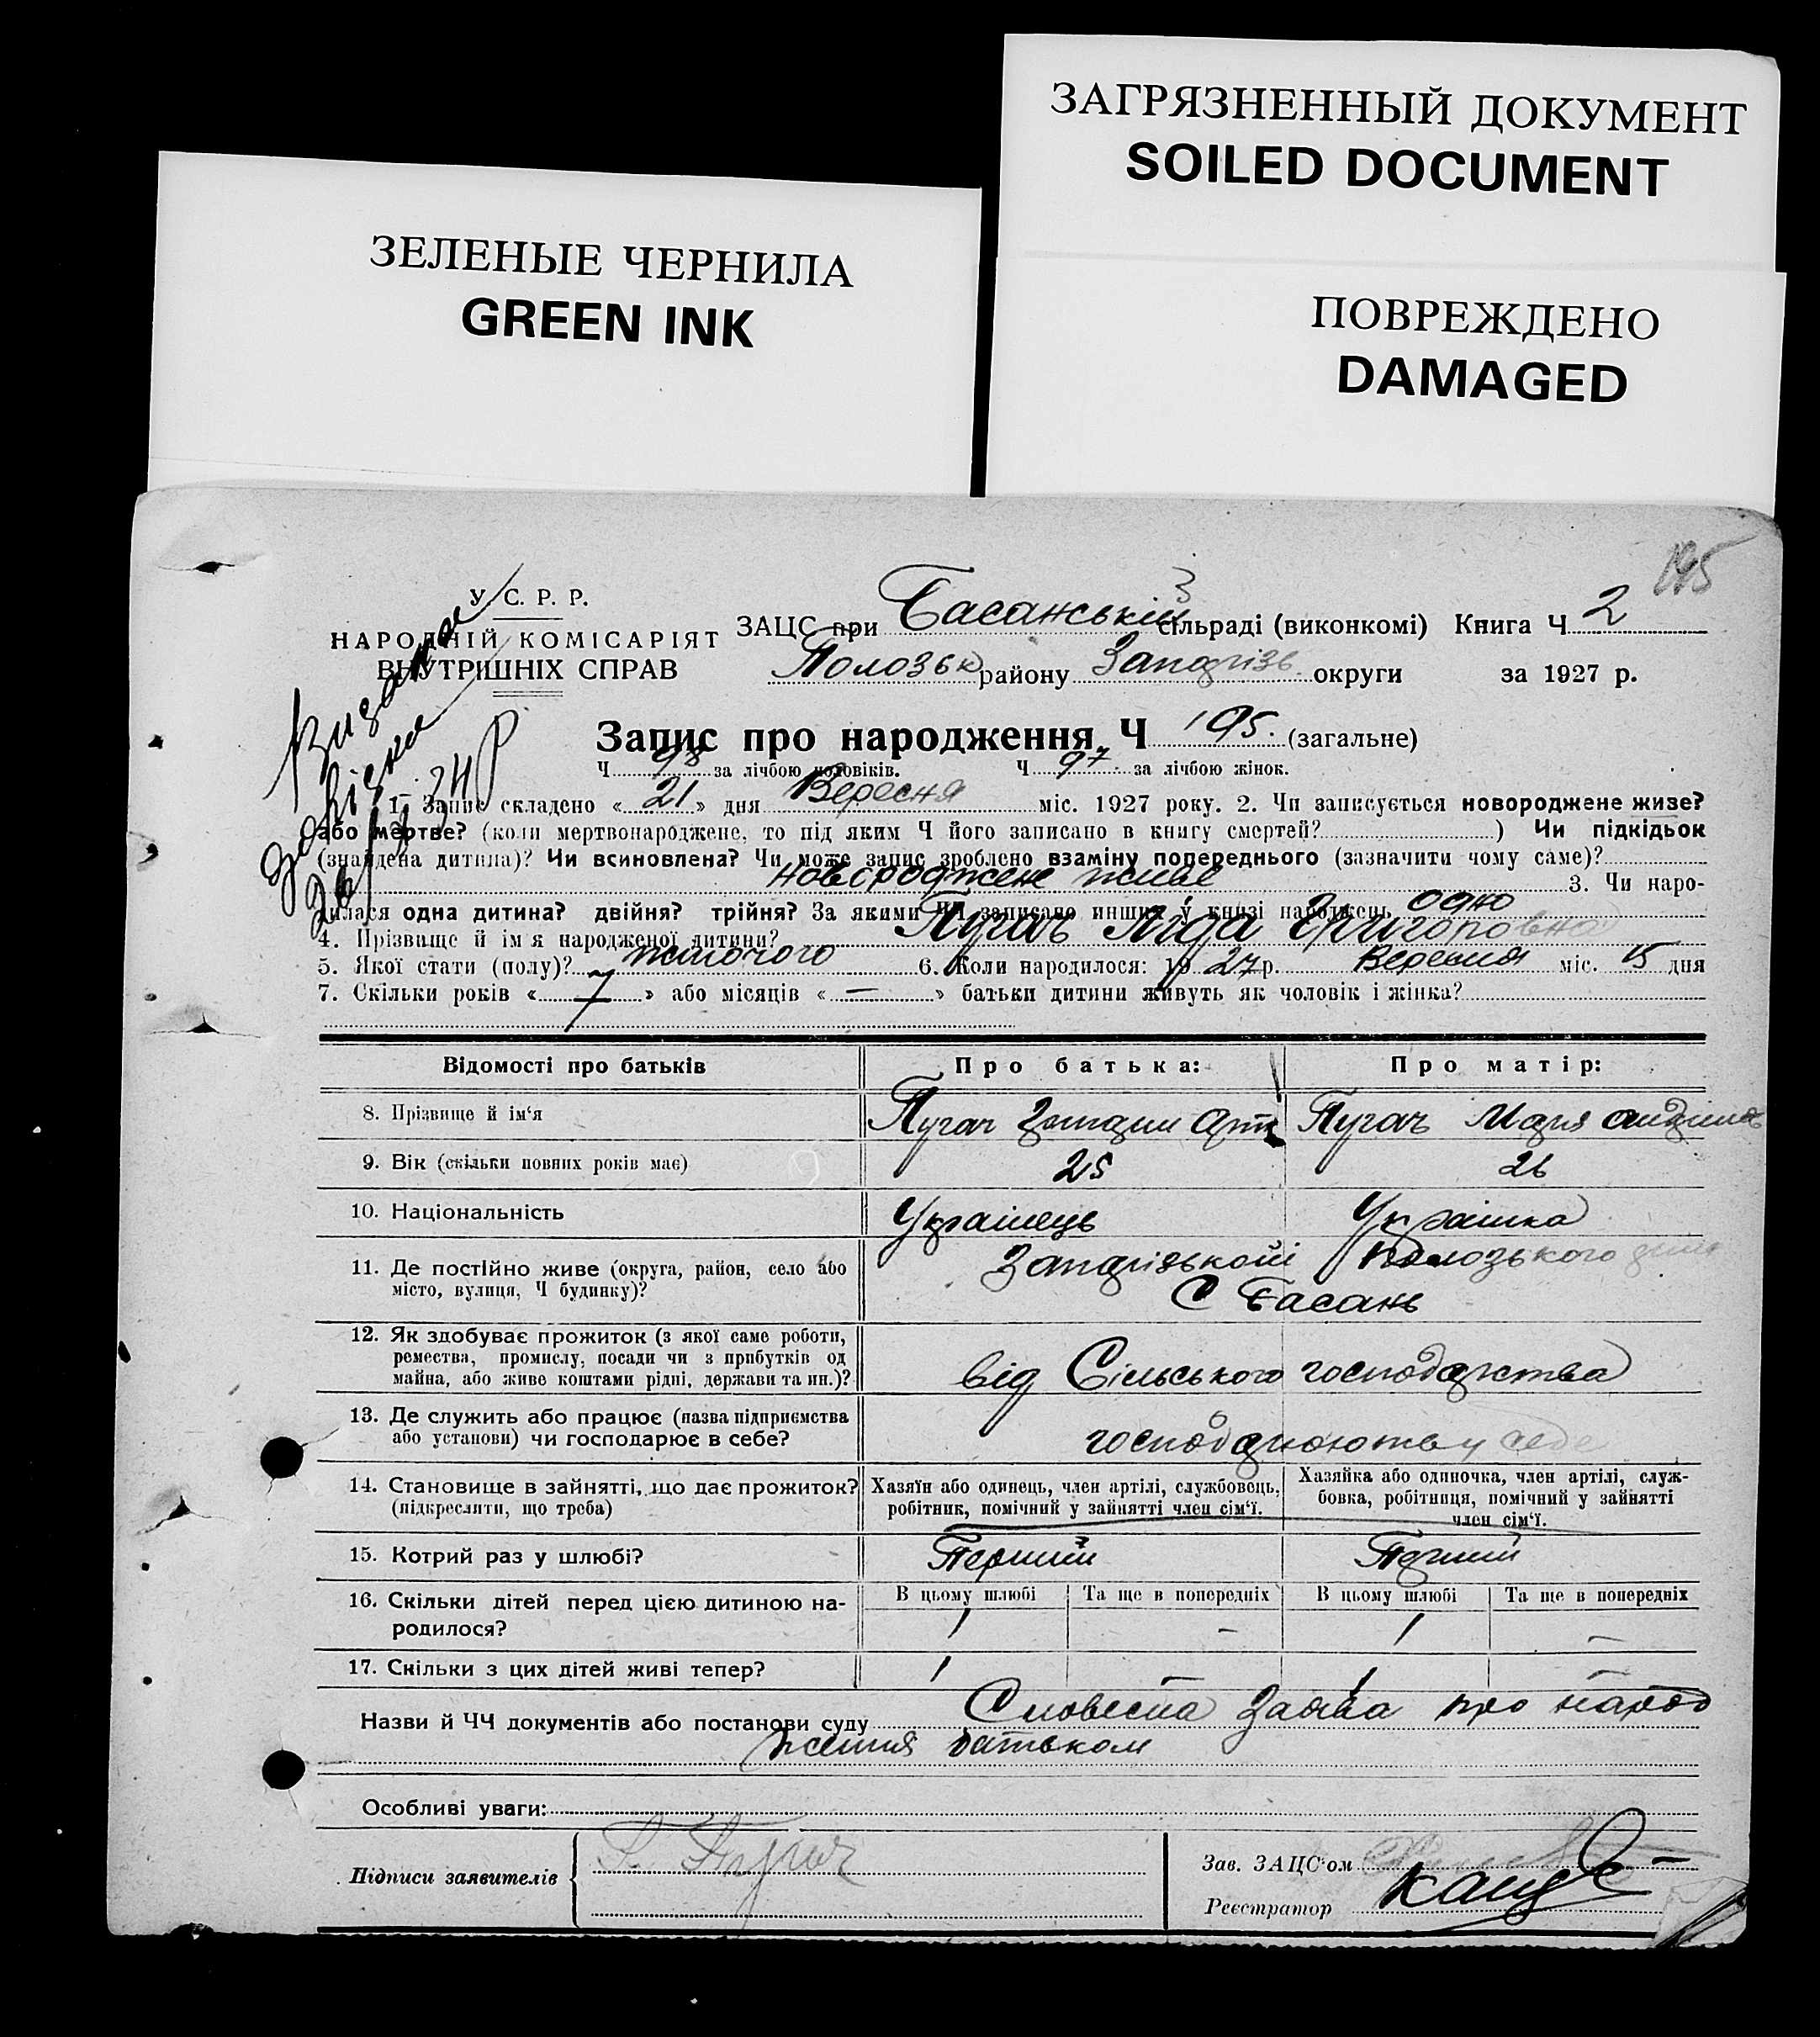 ЗАГРЯЗНЕННЫЙ ДОКУМЕНТ
SOILED DOCUMENT
ЗЕЛЕНЫЕ ЧЕРНИЛА
GREEN INK
ПОВРЕЖДЕНО
DAMAGED
195
У. С. Р. Р.
НАРОДНІЙ КОМІСАРІЯТ
ВНУТРІШНІХ СПРАВ
ЗАЦС при Басанській сільраді (виконкомі) Книга Ч 2
Полозьк району Запоріз округи за 1927 р.
Видана
довідка
Запис про народження Ч 195. (загальне)
Ч 98 за лічбою чоловіків. Ч 97 за лічбою жінок.
1. Запис складено « 21 » дня Вересня міс. 1927 року. 2. Чи записується новороджене живе?
або мертве? (коли мертвонароджене, то під яким Ч його записано в книгу смертей? ) Чи підкідьок
(знайдена дитина)? Чи всиновлена? Чи може запис зроблено взаміну попереднього (зазначити чому саме)?
новороджене живе 3. Чи наро-
дилася одна дитина? двійня? трійня? За якими ЧЧ записано инших у книзі народжень одно
4. Прізвище й ім'я народженої дитини? Пугач Ліда Григоровна
5. Якої стати (полу)? жіночого 6. Коли народилося: 1927 р. Вересня міс. 15 дня
7. Скільки років « 7 » або місяців « — » батьки дитини живуть як чоловік і жінка?
Відомості про батьків Про батька: Про матір:
8. Прізвище й ім'я Пугач Пугач Марія
9. Вік (скільки повних років має) 25 26
10. Національність Українець Українка
11. Де постійно живе (округа, район, село або
місто, вулиця, Ч будинку)?
Запорізької Полозького
С Басань
12. Як здобуває прожиток (з якої саме роботи,
ремества, промислу, посади чи з прибутків од
майна, або живе коштами рідні, держави та ин.)?
від Сільського господарства
13. Де служить або працює (назва підприємства
або установи) чи господарює в себе?
господарюють у себе
14. Становище в зайнятті, що дає прожиток?
(підкреслити, що треба)
Хазяїн або одинець, член артілі, службовець,
робітник, помічний у зайнятті член сім'ї.
Хазяйка або одиночка, член артілі, служ-
бовка, робітниця, помічний у зайнятті
член сім'ї.
15. Котрий раз у шлюбі? Перший Перший
16. Скільки дітей перед цією дитиною на-
родилося?
В цьому шлюбі Та ще в попередніх В цьому шлюбі Та ще в попередніх
1 — 1 —
17. Скільки з цих дітей живі тепер? 1 1 —
Назви й ЧЧ документів або постанови суду Словесна Заява про народ
ження батьком
Особливі уваги:
Підписи заявителів Пугач
Зав. ЗАЦС'ом
Реєстратор